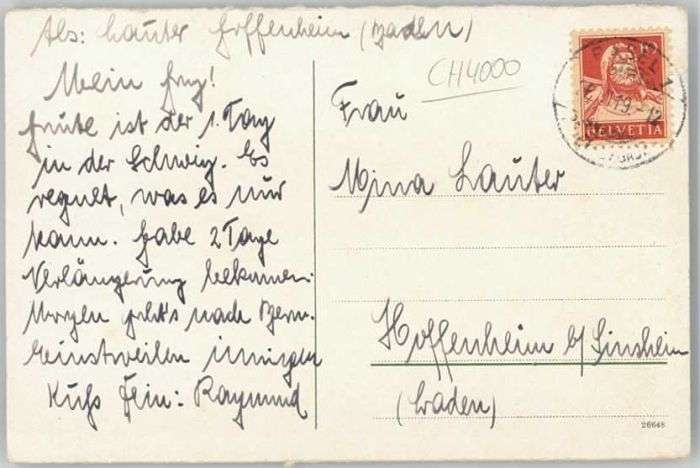 Abs: Lauter Hoffenheim (Baden)
Mein Frz!
Heute ist der 1. Tag
in der Schweiz. Es
regnet, was es nur
kann. Habe 2 Tage
Verlängerung bekommen.
Morgen geht's nach Bern.
Einstweilen innigen
Kuß Dein: Raymund
CH4000
BASEL 1
HELVETIA
Frau
Mina Lauter
Hoffenheim b/ Sinsheim
(Baden)
26648